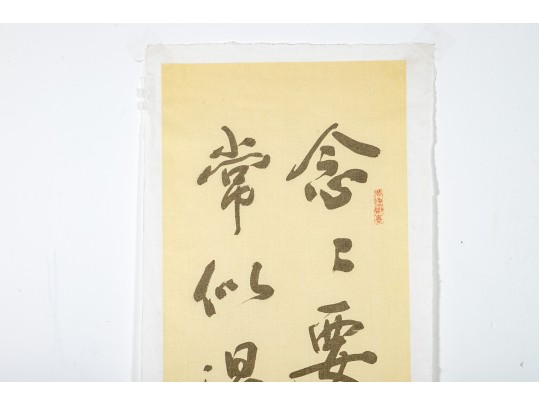 念〻要
常似